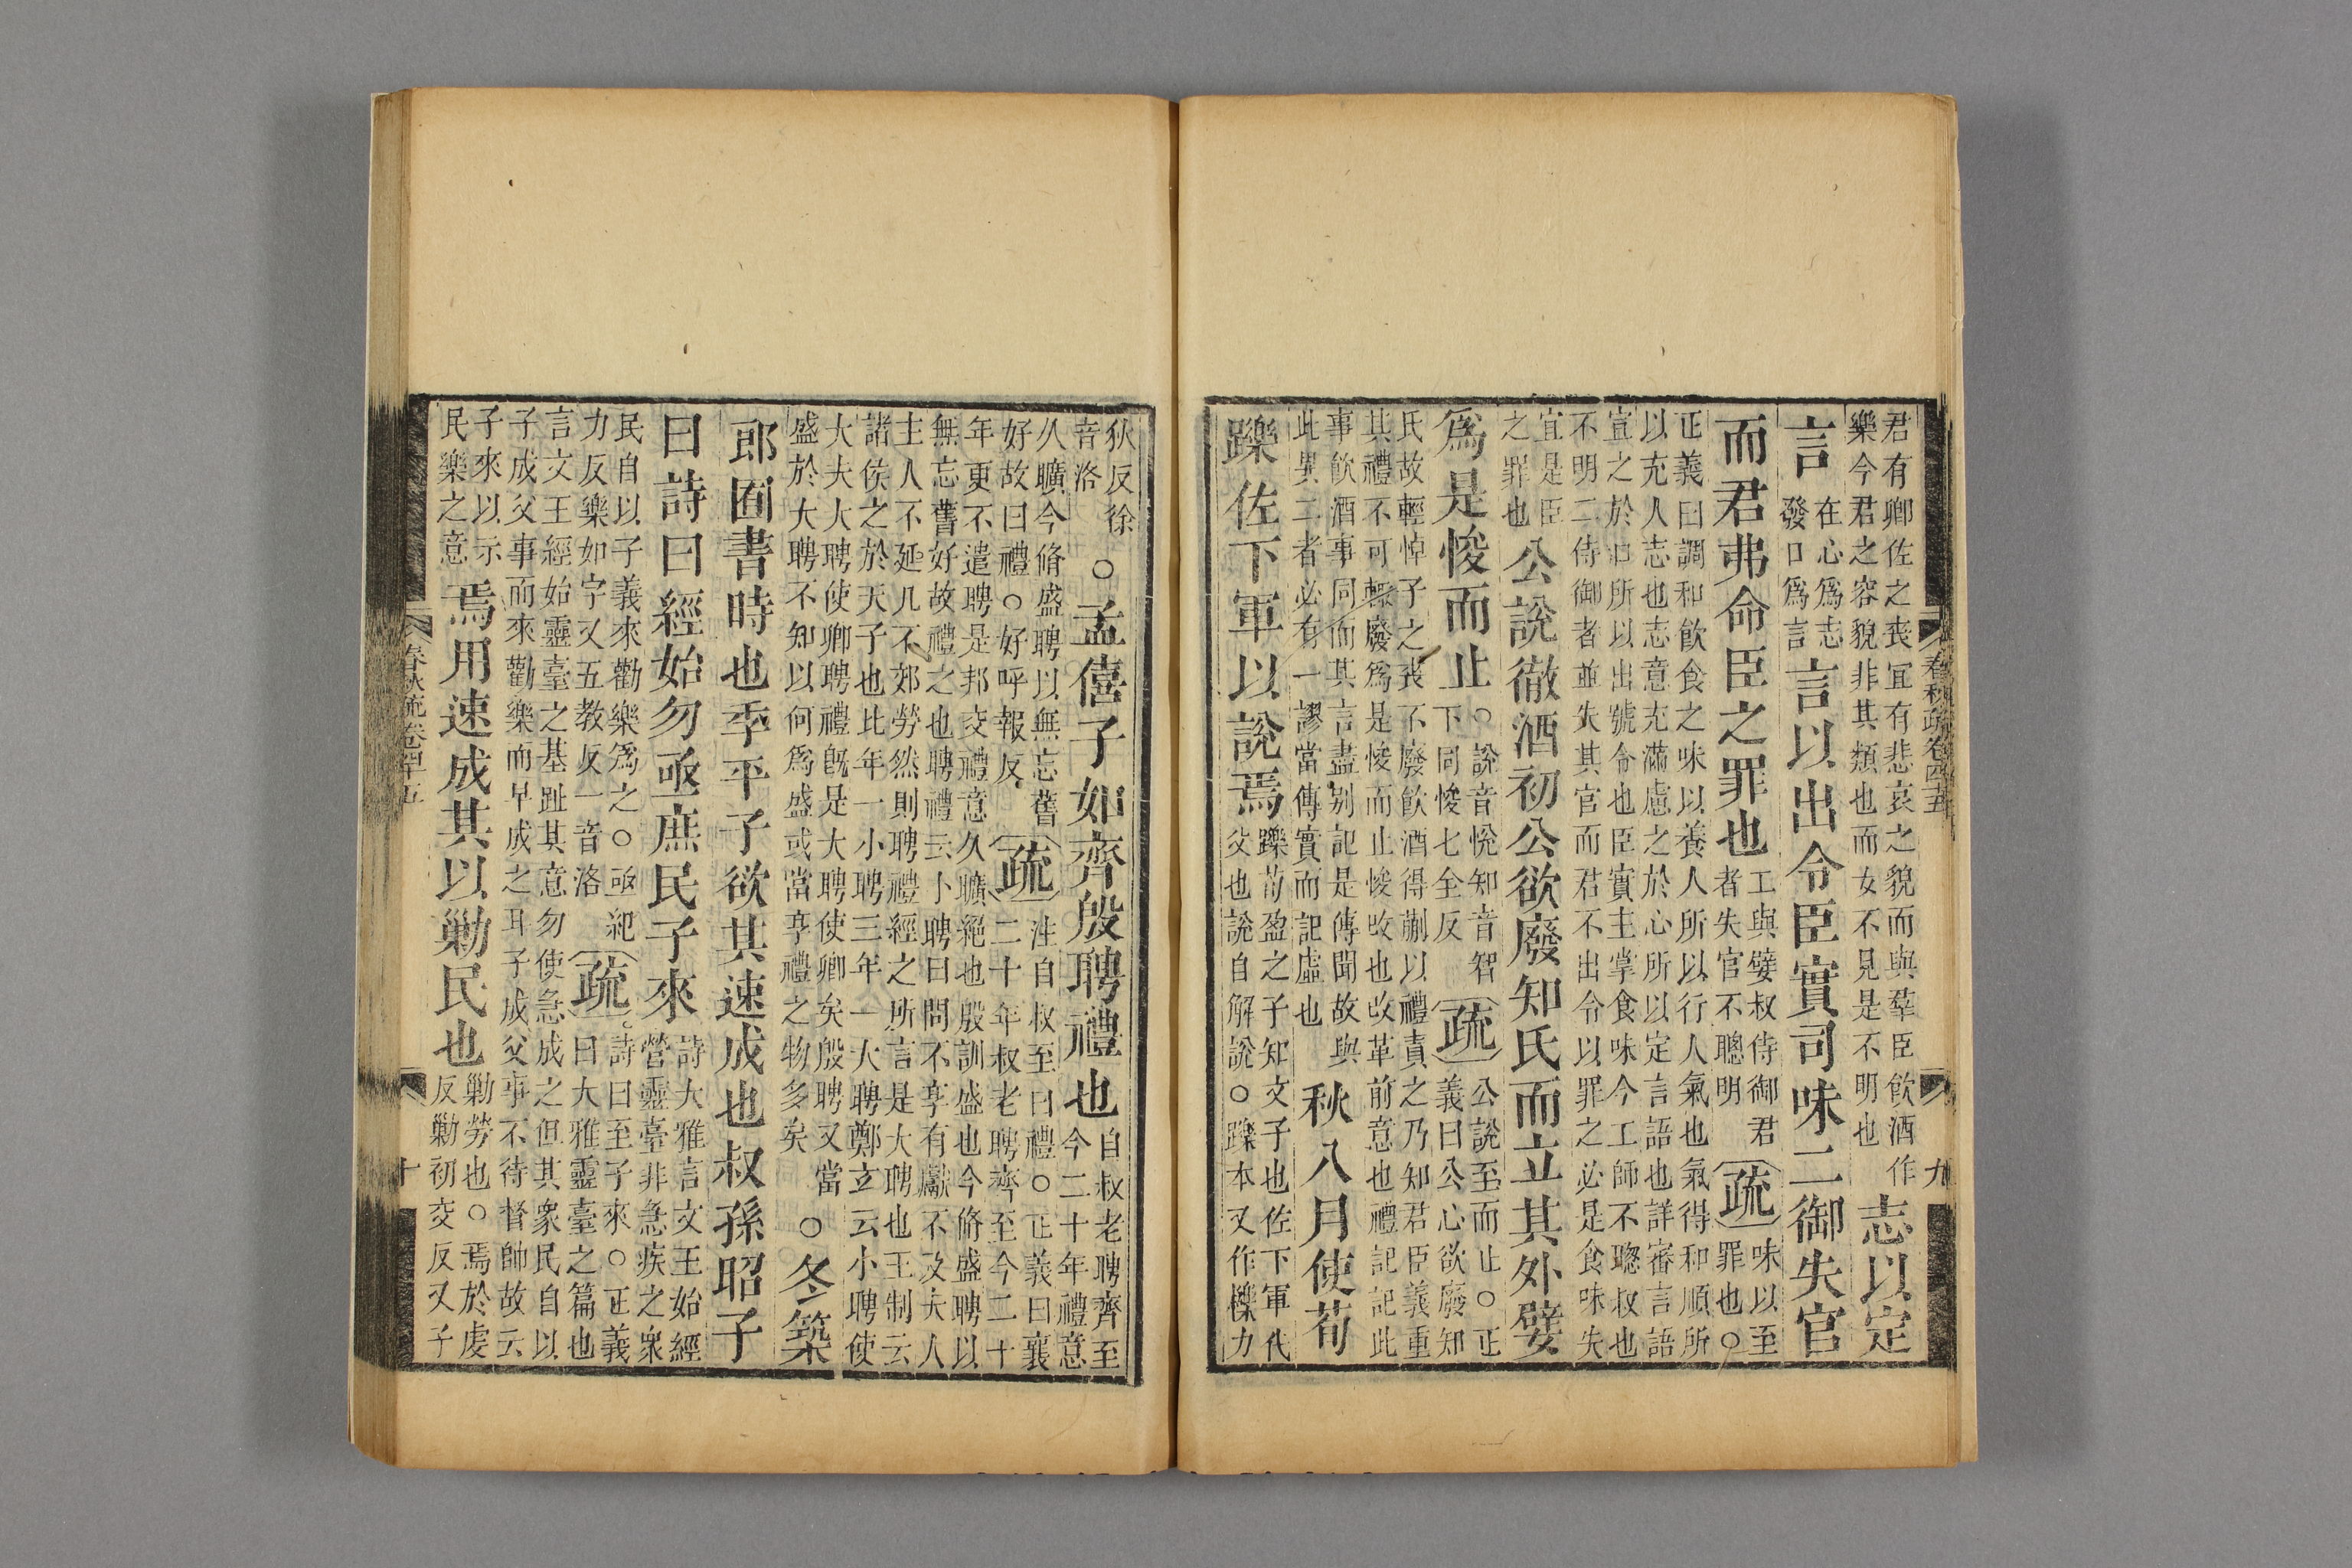 君有卿佐之喪宜有悲哀之貌而與羣臣飲酒作
樂今君之容貌非其類也而女不見是不明也
志以定
言
在心爲志
發口爲言
言以出令臣實司味二御失官
而君弗命臣之罪也
工與嬖叔侍御君
者失官不聰明
疏
味以至
罪也○
正義曰調和飲食之味以養人所以行人氣也氣得和順所
以充人志也志意充滿慮之於心所以定言語也詳審言語
宣之於口所以出號令也臣實主掌食味今工師不聰叔也
不明二侍御者並失其官而君不出令以罪之必是食味失
宜是臣
之罪也
公說徹酒初公欲廢知氏而立其外嬖
爲是悛而止
○說音悅知音智
下同悛七全反
疏
公說至而止○正
義曰公心欲廢知
氏故輕悼子之喪不廢飲酒得蒯以禮責之乃知君臣義重
其禮不可輒廢爲是悛而止悛改也改革前意也禮記記此
事飲酒事同而其言盡别記是傳聞故與
此異二者必有一謬當傳實而記虛也
秋八月使荀
躒佐下軍以說焉
躒荀盈之子知文子也佐下軍代
父也說自解說○躒本又作櫟力
春秋疏卷四十五
九
狄反徐
音洛
○孟僖子如齊殷聘禮也
自叔老聘齊至
今二十年禮意
久曠今脩盛聘以無忘舊
好故曰禮○好呼報反
疏
注自叔至曰禮○正義曰襄
二十年叔老聘齊至今二十
年更不遣聘是邦交禮意久曠絕也殷訓盛也今脩盛聘以
無忘舊好故禮之也聘禮云小聘曰問不享有獻不及夫人
主人不延几不郊勞然則聘禮經之所言是大聘也王制云
諸侯之於天子也比年一小聘三年一大聘鄭玄云小聘使
大夫大聘使卿聘禮旣是大聘使卿矣殷聘又當
盛於大聘不知以何爲盛或當享禮之物多矣
○冬築
郎囿書時也季平子欲其速成也叔孫昭子
曰詩曰經始勿亟庶民子來
詩大雅言文王始經
營靈臺非急疾之衆
民自以子義來勸樂爲之○亟紀
力反樂如字又五教反一音洛
疏
詩曰至子來○正義
曰大雅靈臺之篇也
言文王經始靈臺之基趾其意勿使急成之但其衆民自以
子成父事而來勸樂而早成之耳子成父事不待督帥故云
子來以示
民樂之意
焉用速成其以勦民也
勦勞也○焉於虔
反勦初交反又子
春秋疏卷四十五
十